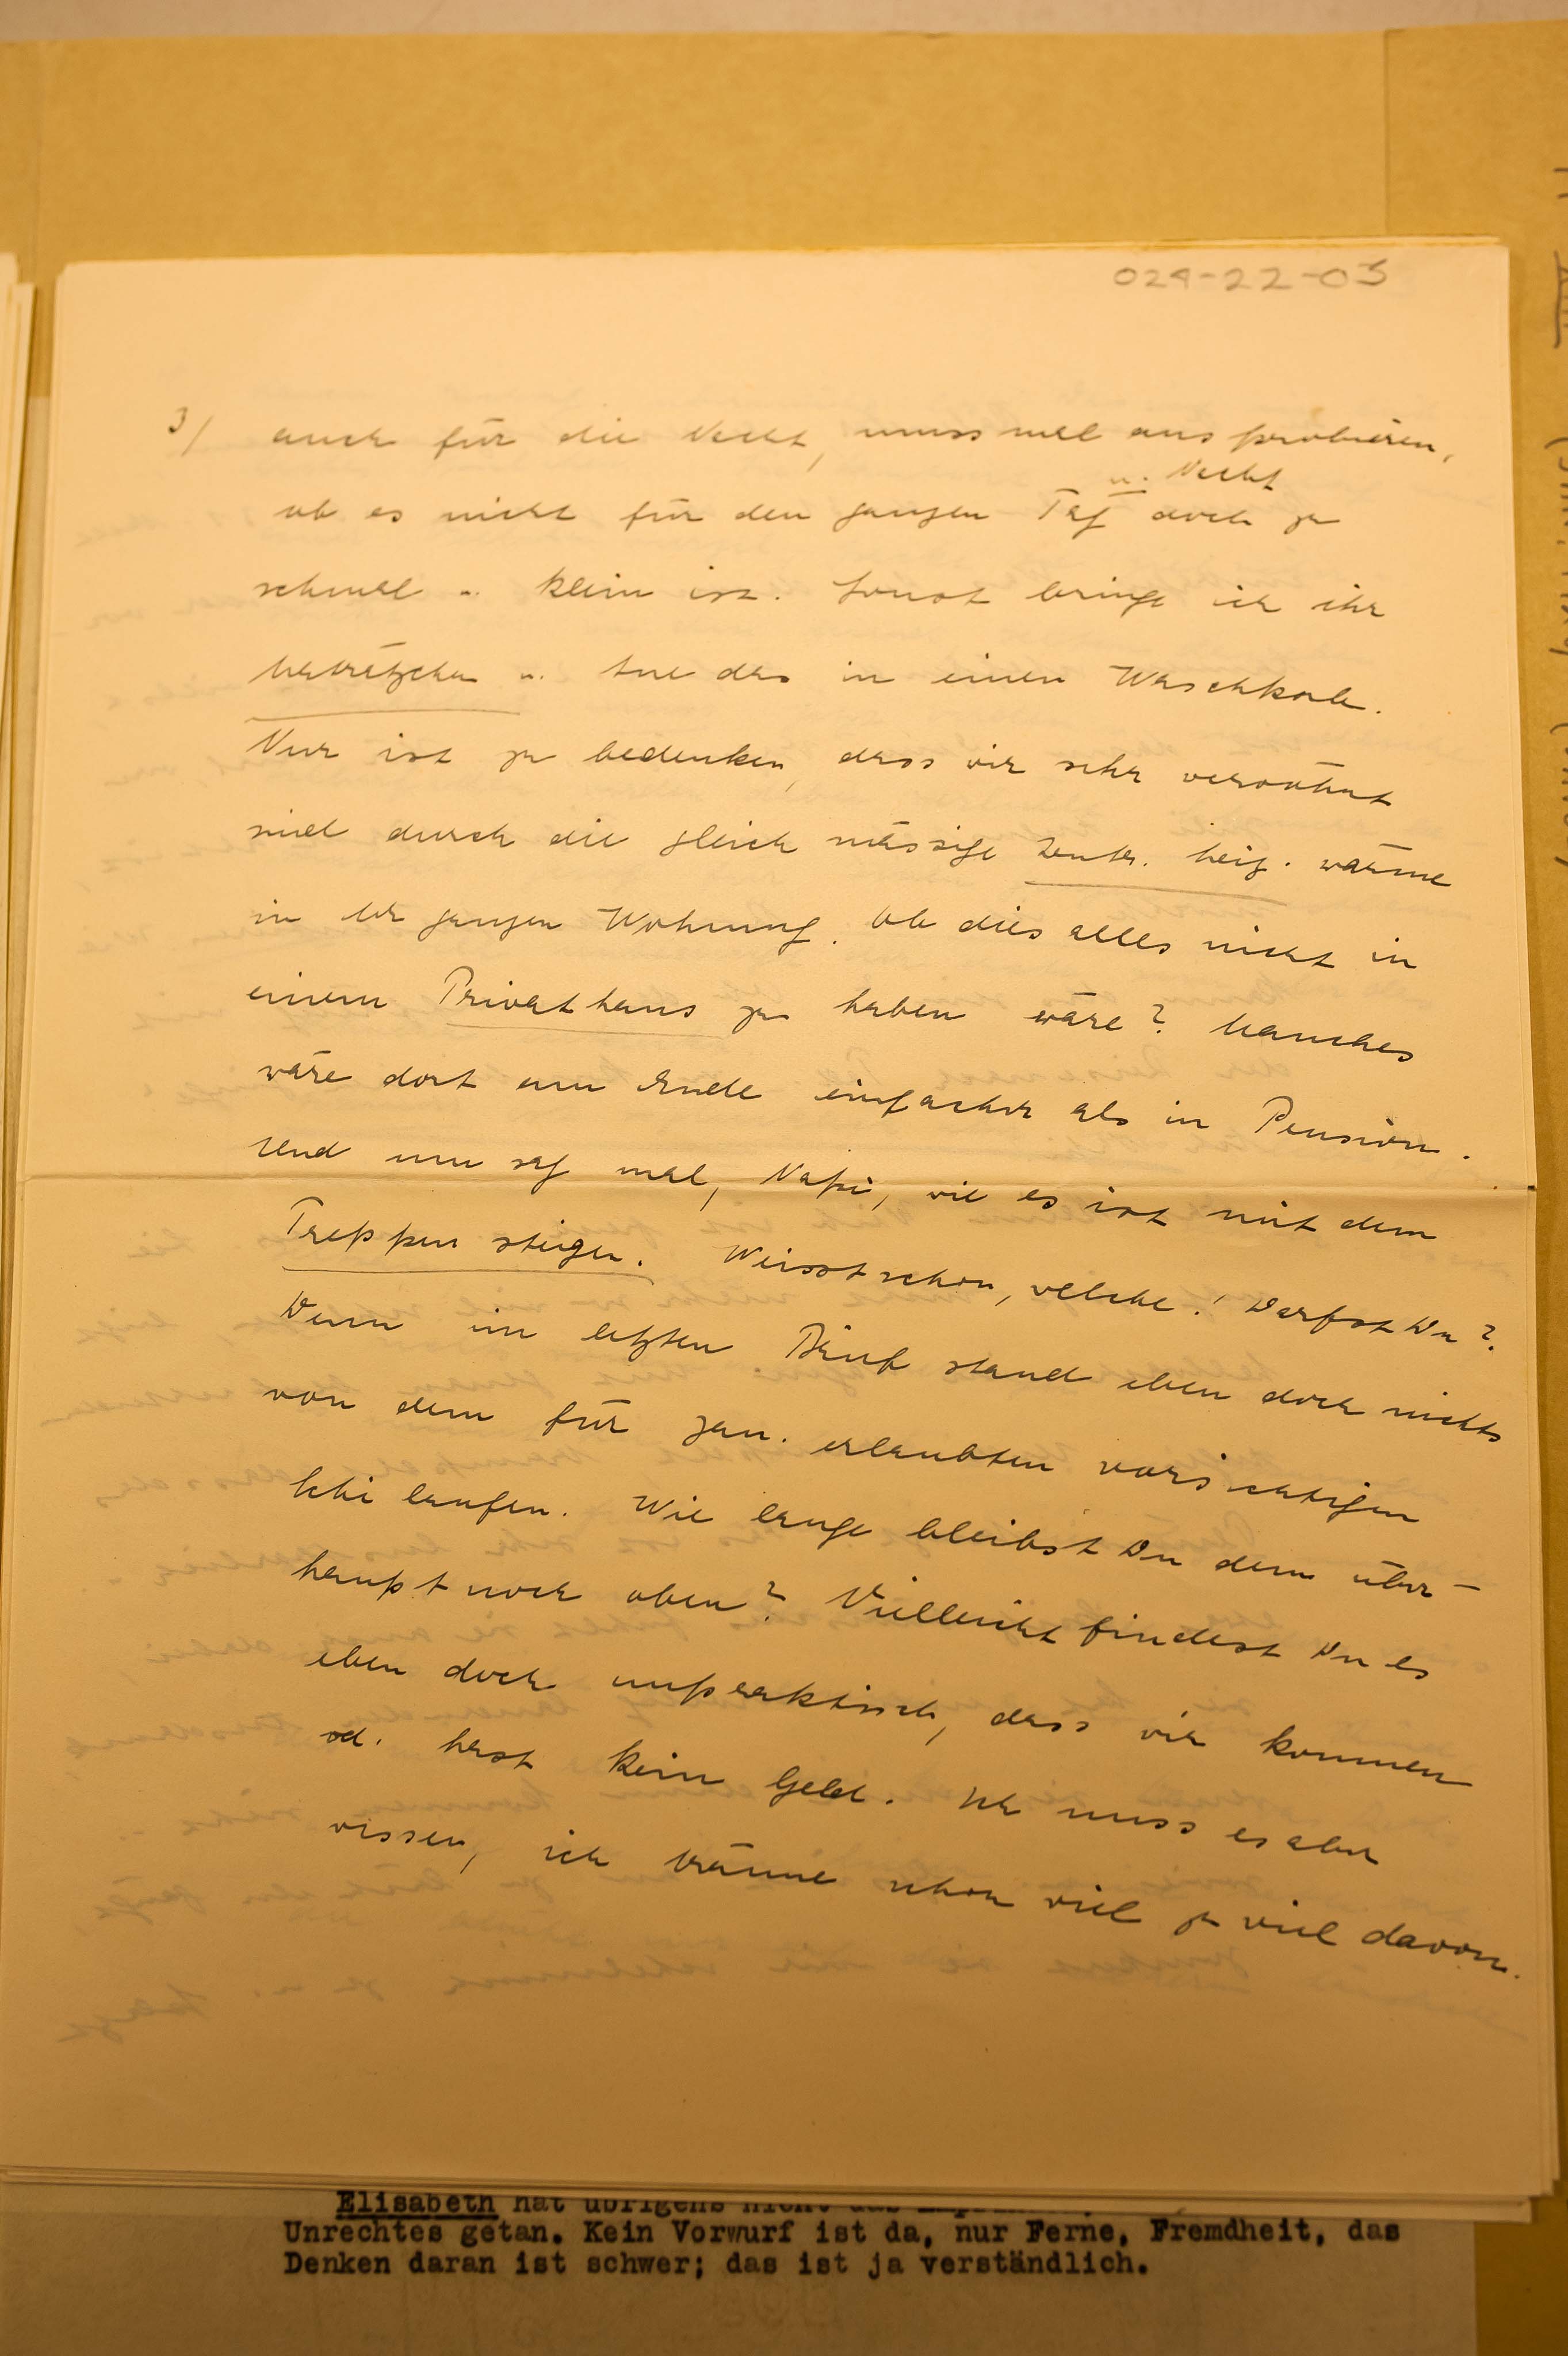 024-22-03
3/ auch für die Nacht, muss mal ausprobieren,
u. Nacht
ob es nicht für den ganzen Tag doch zu
schmal u. klein ist. Sonst bringe ich ihr
Maträtzchen u. tue das in einen Waschkorb.
Nur ist zu bedenken, dass wir sehr verwöhnt
sind durch die gleichmässige Zentr. heiz. wärme
in der ganzen Wohnung. Ob dies alles nicht in
einem Privathaus zu haben wäre? Manches
wäre dort am Ende einfacher als in Pension.
Und nun sag mal, Napi, wie es ist mit dem
Treppen steigen. Weisst schon, welche! Darfst Du?
Denn im letzten Brief stand eben doch nichts
von dem für Jan. erlaubten vorsichtigen
Schi laufen. Wie lange bleibst Du denn über-
haupt noch oben? Vielleicht findest Du es
eben doch unpraktisch, dass wir kommen
od. hast kein Geld. Ich muss es aber
wissen, ich träume schon viel zu viel davon.
Elisabeth hat übrigens nicht das
Unrechtes getan. Kein Vorwurf ist da, nur Ferne, Fremdheit, das
Denken daran ist schwer; das ist ja verständlich.